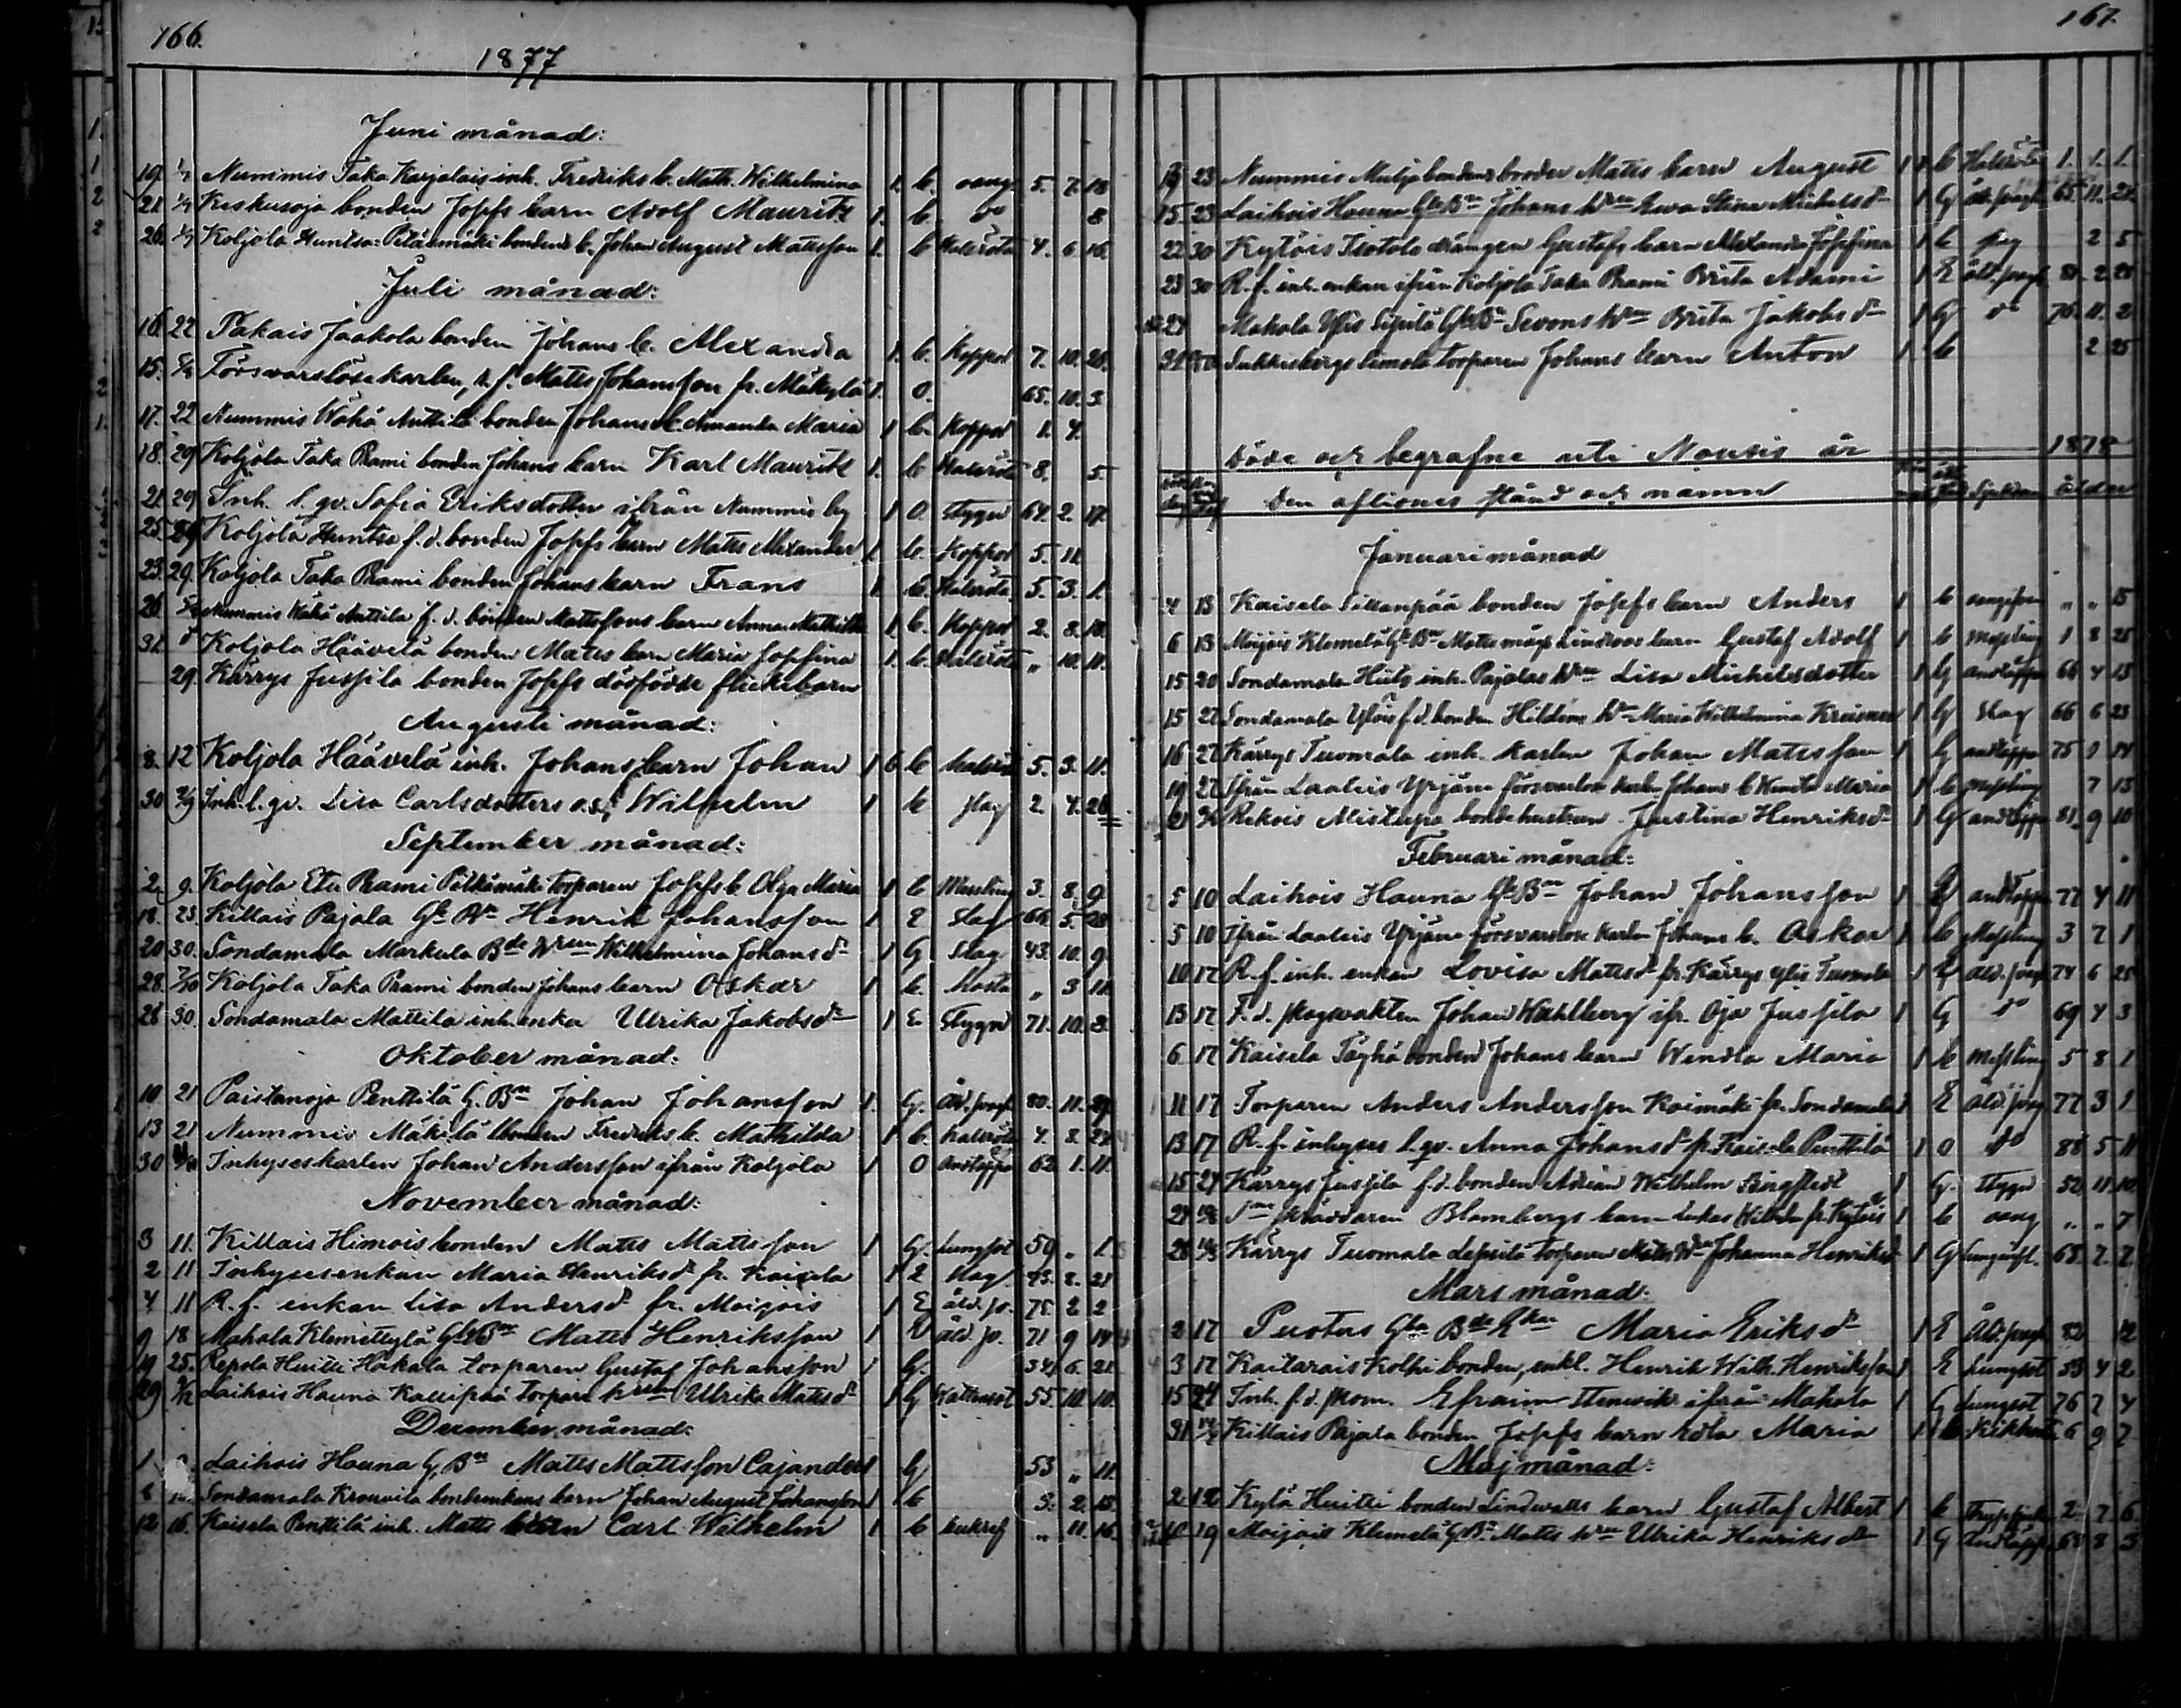 166.
1877
Juni månad:
19. 1/7 Nummis Taka Karjalais inh. Fredriks b. Math. Wilhelmina 1. b. oang. 5. 7. 18
21 1/7 Keskusoja bonden Josefs barn Adolf Maurits 1. b. do 8
26. 1/7 Koljola Huntsa: bondens b. Johan August Mattsson 1. b Halsröta 4. 6 16.
Juli månad:
16. 22 Takais Jaakola bonden Johans b. Alexandra 1. b. Koppor 7. 10. 26.
15. Försvarslöse karlen, Matts Johansson fr. Mäkylä 1. O. 65. 10. 3.
17. 22 Nummis Wähä Anttila bonden Johans b. Amanda Maria 1 b. Koppor 1. 4.
18. 29 Koljola Taka Rami bonden Johans barn Karl Maurits 1. b Halsröta 8. 5.
21. 29 Inh. l. qv. Sofia Eriksdotter ifrån Nummis by 1 O. Stygn 64. 2. 17.
25. 29 Koljola Huntsa f. d. bonden Josefs barn Matts Alexander 1. b. Koppor 5. 11.
23. 29. Koljola Taka Rami bonden Johans barn Frans 1 b. Halsröta 5. 3. 1.
26. Nummis Wähä Anttila f. d. bonden Mattssons barn Anna Mathilda 1 b. Koppor 2. 8. 18.
31. Koljola Häävelä bonden Matts barn Maria Josefina 1. b. Halsröta " 10. 11.
29. Kärrys Jussila bonden Josefs dödfödde flickebarn
Augusti månad:
8. 12 Koljola Häävelä inh. Johans barn Johan 1 b Halsröta 5. 3. 11.
30 2/9 Inh. l. qv. Lisa Carlsdotters Wilhelm 1 b slag 2. 4. 26
September månad:
2. 9. Koljola Etu Rami torparen Josefs b. Olga Maria 1 b Messling 3. 8. 9
18. 23. Killais Pajala Gle Bn Henrik Johansson 1 E Slag 66. 5. 28
20 30. Sondamala Markula Bde Hrun Wilhelmina Johansdr 1 G Slag 43. 10. 9
28. 7/10 Koljola Taka Rami bonden Johans barn Oskar 1 b. Hosta " 3 11.
26 30. Sondamala Mattila inh. enka Ulrika Jakobsdr 1 E. Stygn 71. 10. 3.
Oktober månad:
10 21 Paistanoja Penttilä G. Bn Johan Johansson 1. G. Åld. svagh. 80. 11. 29
13 21 Nummis Mäkilä bonden Fredriks b. Mathilda 1 b. Halsröta 4. 8. 24
30 Inhyseskarlen Johan Andersson ifrån Koljola 1 O Andtäppa 62 1. 11.
November månad:
3 11. Killais Himois bonden Matts Mattsson 1 G. Lungsot 50 " 1
2 11 Inhysesenkan Maria Henriksdr fr. Kaisela 1 E Slag 43. 8. 21
4 11 R. f. enkan Lisa Andersdr fr. Moijois 1 E åld. sv. 75. 2 2
9 18 Mahala Klemettylä Gle Bn Matts Henriksson 1 åld. sv. 71 9 14
19 25. Repola Huitti Hakala torparen Gustaf Johansson 1 G. 34. 6. 21.
29 Laihois Hauna torpare hrun Ulrika Mattsdr 1 G Wattusot 55. 10. 10.
December månad:
1 Laihois Hauna G. Bn Matts Mattsson Cajander 1 G 53 " 11.
Sondamala Krouvila bonden barn Johan August Johansson 1 b 3. 2. 15.
12 16. Kaisela Penttilä inh. Matts barn Carl Wilhelm 1 b " 11. 16.
167.
23 Nummis bondens broder Matts barn August 1 b Halsröta 1. 1. 1.
15. 23 Laihois Hauna Gle Bn Johans hru Ewa Stina Michelsdr 1 G åld. svagh. 65. 11. 23.
22 30 Kylöis drängen Gustafs barn Alexandra Josefina 1 b slag 2 5
23 30 R. f. inh. enkan ifrån Koljola Taka Rami Brita Adami 1 E åld. svagh. 81. 2. 28
24 Mahala Ylis Sipilä Gle Bn Hrun Brita Jakobsdr 1 G do 76. 11. 2
31 torparen Johans barn Anton 1 b 2 25
Döde och begrafne uti Nousis år 1878
Den aflidnes stånd och namn Sjukdom ålder
Januari månad
4 13 Kaisela Sillanpää bonden Josefs barn Anders 1 b " " 15
6 13 Moijois Klemelä Gle Bn Matts mågs Lindroos barn Gustaf Adolf 1 b Messling 1 8 25
15 20 Sondamala inh. Pajalas hru Lisa Michelsdotter 1 G andtäppa 66 4 13
15 27 Sondamala f. d. bonden Hildens hru Maria Wilhelmina 1 G Slag 66 6 23
16 27 Kärrys Tuomala inh. karlen Johan Mattsson 1 G andtäppa 75 1 14
19 27 Ifrån Laaleis Yrjänä försvarlöse karlen Johans b Maria 1 b Messling 7 13
21 Rekois Alistupa bondehustrun Justina Henriksdr 1 G andtäppa 51. 9 10
Februari månad:
5 10 Laihois Hauna Gle Bn Johan Johansson 1 andtäppa 77 4 11
5 10 Ifrån Laaleis Yrjänä försvarslöse karlen Johans b. Oskar 1 b Messling 3 7 1
10 17 R. f. inh. enkan Lovisa Mattsdr fr. Kärrys Ylis Tuomala 1 E åld. svagh 74 6 25
13 17 F. d. skogvakten Johan Wahlberg ifr. Oja Jussila 1 G do 69 4 3
6 17 Kaisela bonden Johans barn Wendla Maria 1 b Messling 5 8 1
11 17 Torparen Anders Andersson Koimäki fr. Sondamala 1 E åld. svag 77 3 1
13 17 R. f. inhyses l. qv. Anna Johansdr fr. Kaisela Penttilä 1 O do 88 5 11
15 24 Kärrys Jussila f. d. bonden Adrian Wilhelm 1 G. Stygn 52 11 10
24 skräddaren Blombergs barn fr. Kylöis 1 b oang " " 7
28 Kärrys Tuomala torparen Matts Johanna Henriksdr 1 G Lunginfl. 65. 7. 7
Mars månad:
2 17 Puotus Gla Bde Ekan Maria Eriksdr 1 E Åld. svagh 82 12
3 17 Kaitarais Kolhi bonden, enkl. Henrik Wilh. Henriksson 1 E Lungsot 53 4 2
15 24 Inh. f. d. skom. Efraim Stenvik ifrån Mahala 1 G Lungsot 76 7 4
31 Killais Pajala bonden Josefs barn Edla Maria 1 b Kikhosta 6 9 7
Maj månad:
2 12 Kylä Huitti bonden barn Gustaf Albert 1 b 2. 7. 6
19 Moijois Klemelä G. Bn Matts hru Ulrika Henriksdr 1 G Andtäppa 68 8 3